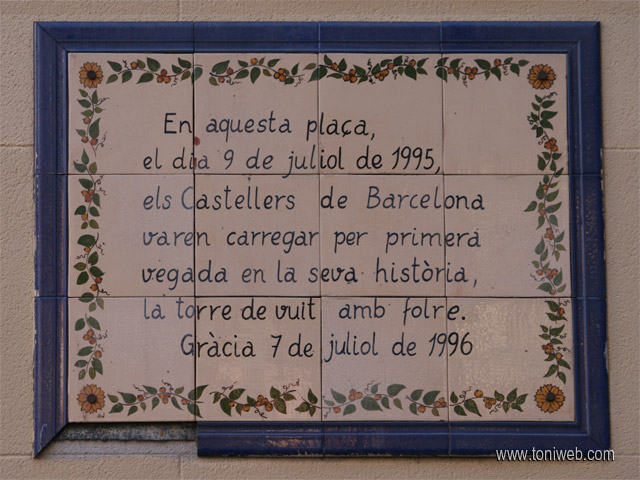 En aquesta plaça,
el dia 9 de juliol de 1995,
els Castellers de Barcelona
varen carregar per primera
vegada en la seva història,
la torre de vuit amb folre.
Gràcia 7 de juliol de 1996
www.toniweb.com